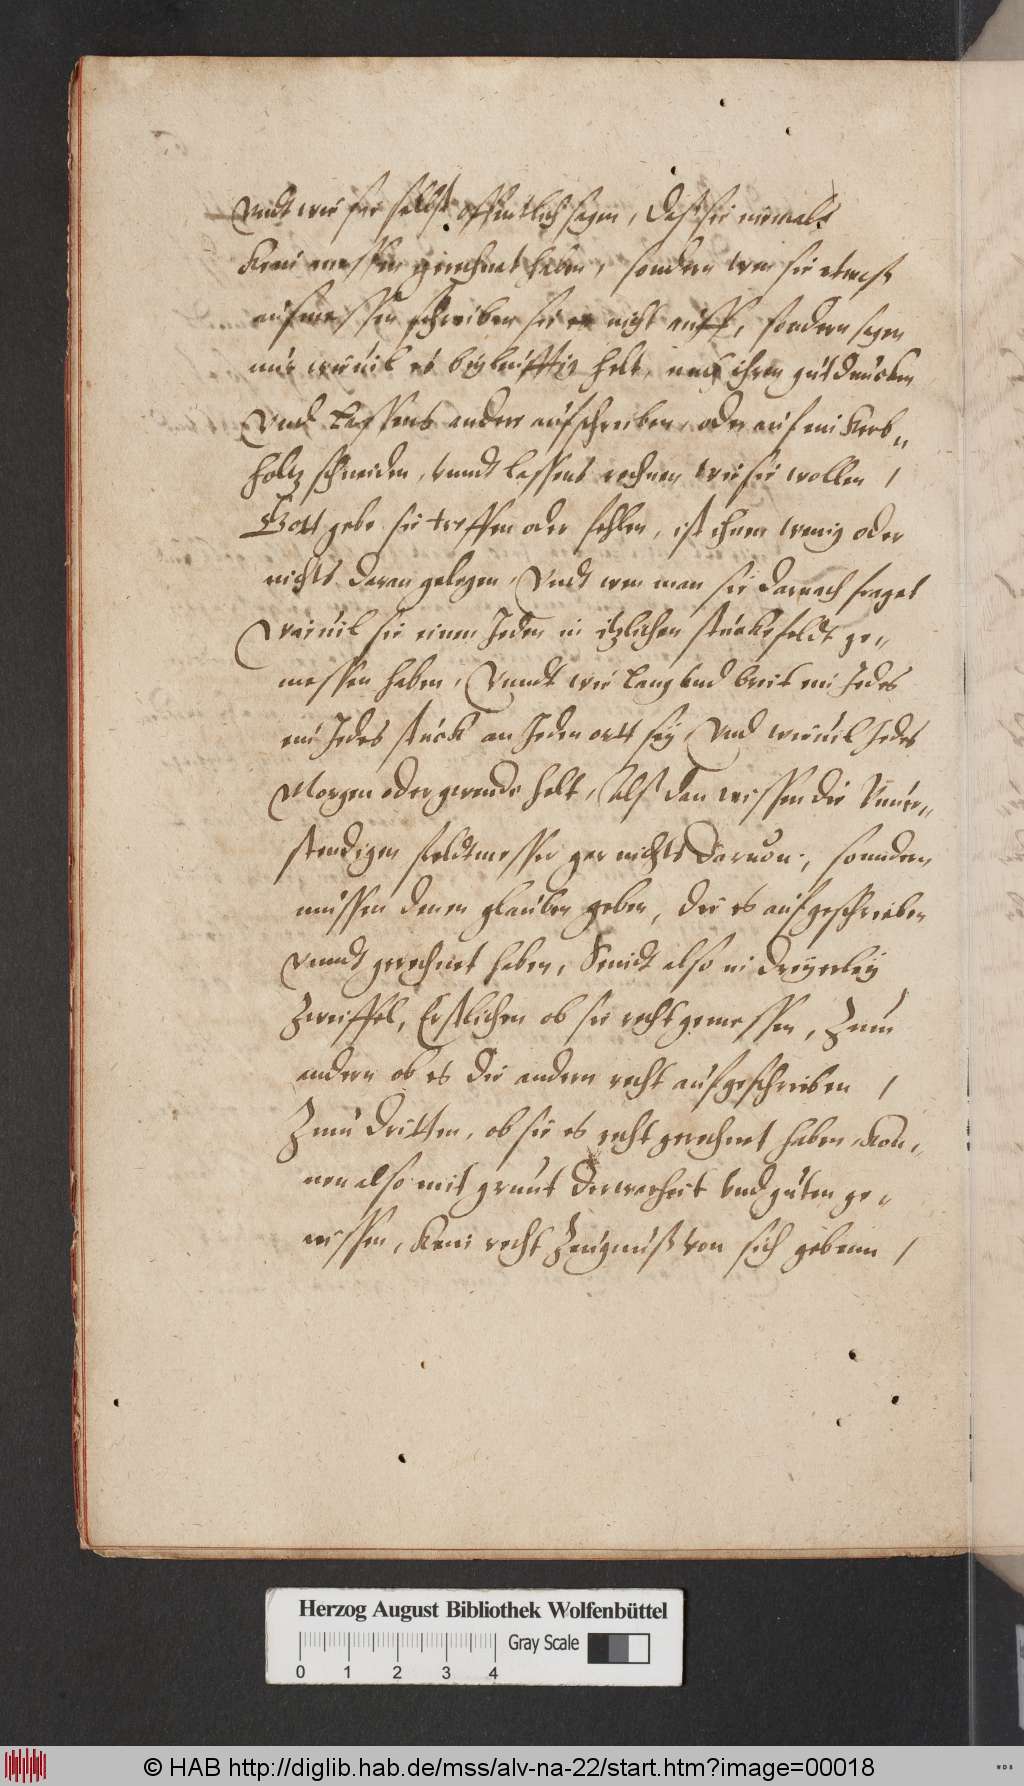 Vndt wie sie selbst offentlich sagen, daß sie niemals
Kein messen gerechnet haben, sondern wen sie etwaß
aufmessen schreiben sie es nicht auff, sondern sagen
nur wieuil es beyleufftig helt, nach ihren gutdüncken
Vnd lassens ander aufschreiben, oder auf ein Kerb„
holtz schneiden, vnndt lassens rechnen wie sie wollen /
Gott gebe sie treffen oder fehlen, ist ihnen wenig oder
nichts daran gelegen, Vndt wen man sie darnach fraget
Wieuil sie einem Jeden in itzlichen stückefeldt ge„
messen haben, Vnndt wie lang vnd breit ein Jedes
ein Jedes stuck an Jeden ortt sey, Vnd wieuil Jedes
Morgen oder gerende helt, Alß dan wissen die Vnuer„
stendigen feldtmesser gar nichts daruon, sonndern
müssen denen glauben geben, die es aufgeschrieben
vnndt gerechnet haben, Seindt also in dreyerley
Zweiffel, Erstlichen ob sie recht gemessen, Zum
andern ob es die andern recht aufgeschrieben /
Zum dritten, ob sie es recht gerechnet haben, Kön„
nen also mit grunt der warheit vnd guten ge„
wissen, Kein recht Zeugnuß von sich gebenn /
Herzog August Bibliothek Wolfenbüttel
Gray Scale
0 1 2 3 4
© HAB http://diglib.hab.de/mss/alv-na-22/start.htm?image=00018